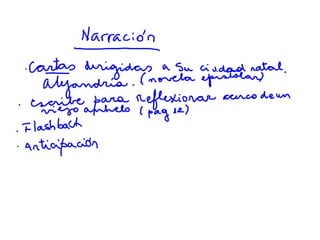 Narración
· Cartas dirigidas a su ciudad natal,
Alejandría. (novela epistolar)
· escribe para Reflexionar acerca de un
viejo anhelo (pag 12)
· Flashback
· anticipación